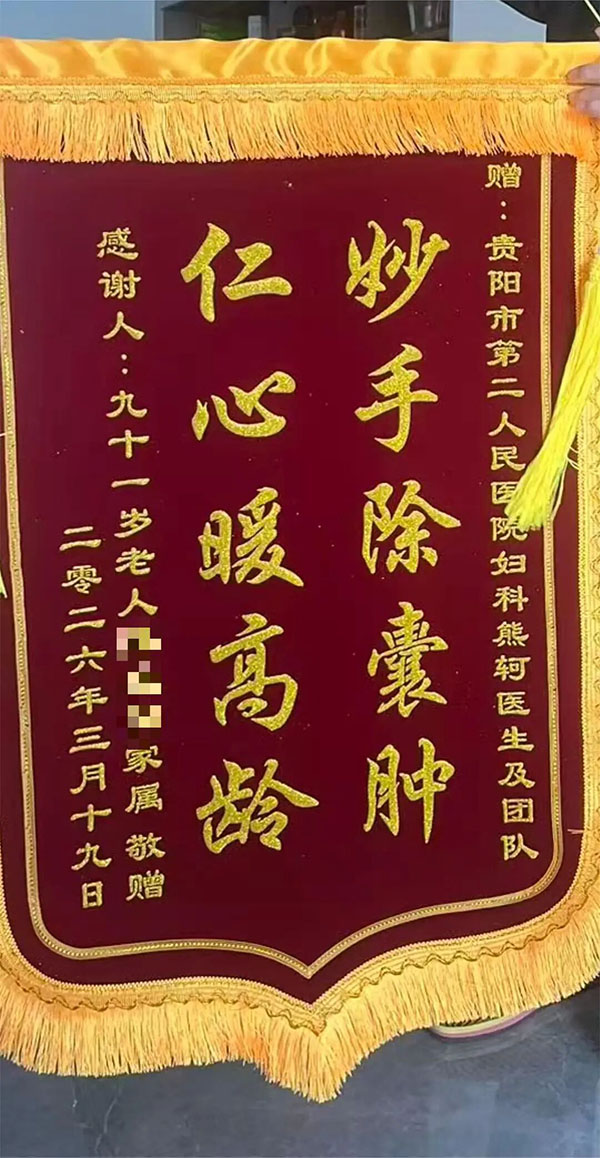 赠：贵阳市第二人民医院妇科熊轲医生及团队
妙手除囊肿
仁心暖高龄
感谢人：九十一岁老人家属 敬赠
二零二六年三月十九日